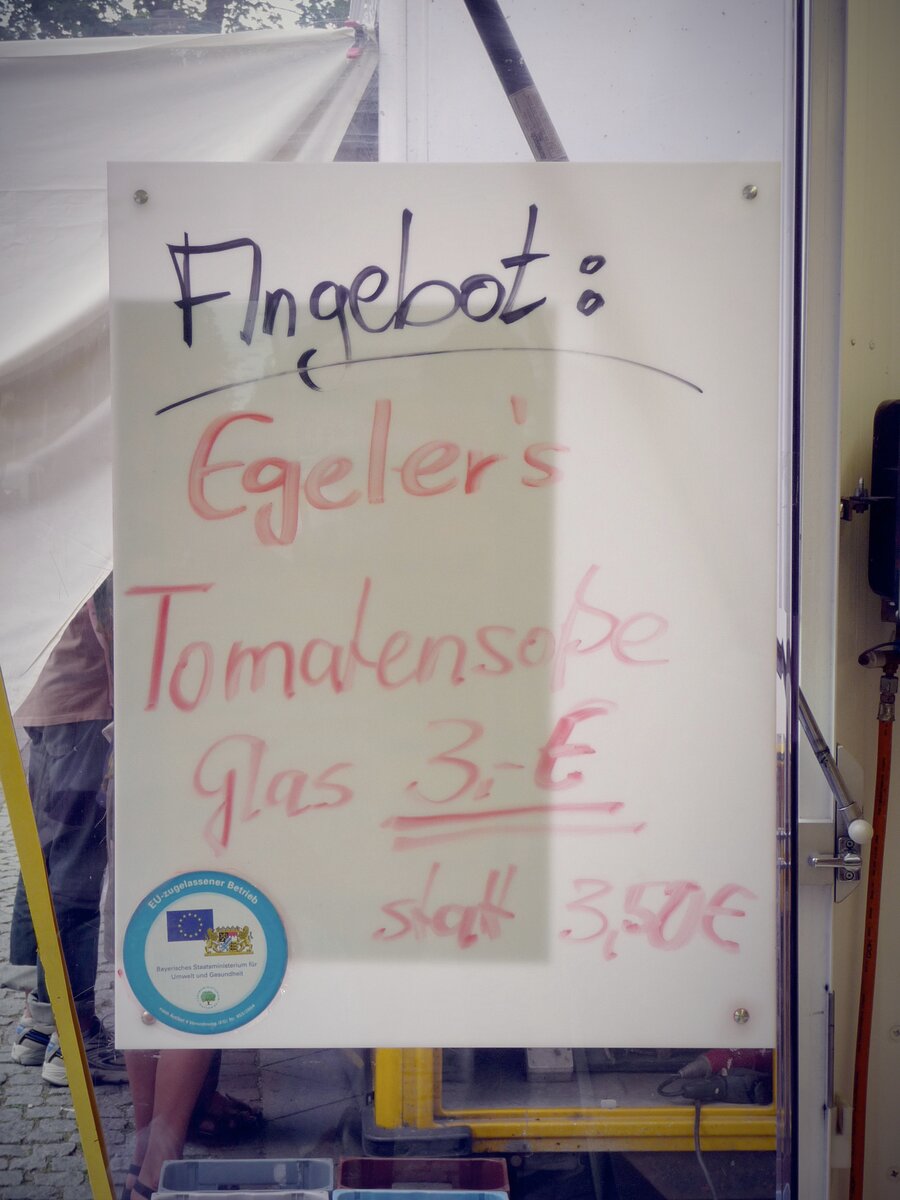 Angebot:
Egeler's
Tomatensoße
Glas 3,-€
statt 3,50€
EU-zugelassener Betrieb
Bayerisches Staatsministerium für
Umwelt und Gesundheit